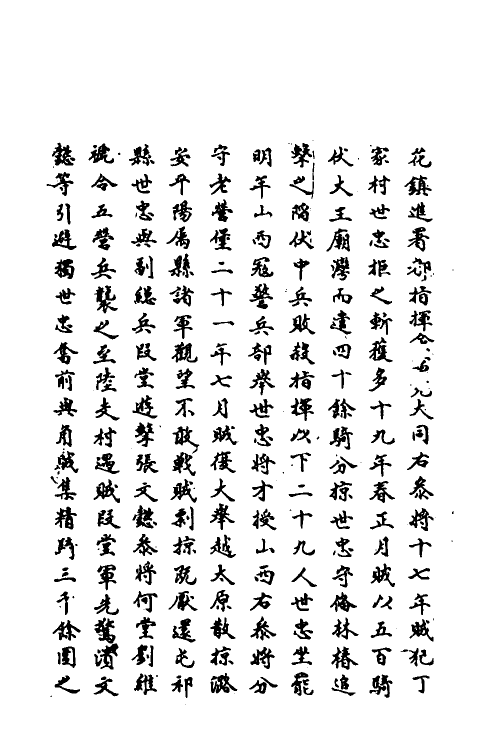 花鎮進署都指揮僉事大同右參將十七年賊犯丁
家村世忠拒之斬獲多十九年春正月賊以五百騎
伏大王廟灣而遣四十餘騎分掠世忠守俻林椿追
擊之陷伏中兵敗殺指揮以下二十九人世忠坐罷
明年山西冦警兵部舉世忠將才授山西右參將分
守老營堡二十一年七月賊復大舉越太原散掠潞
安平陽屬縣諸軍觀望不敢戰賊剽掠旣厭還屯祁
縣世忠與副總兵段堂遊擊張文懿參將何堂劉繼
禠合五營兵襲之至陸支村遇賊段堂軍先驚潰文
懿等引避獨世忠奮前與角賊集精騎三千餘圍之